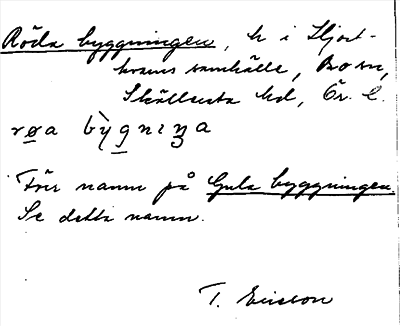 Röda byggningen, h i Hjort-
kvarns samhälle, Bo sn,
Skyllersta hd, Ör. l.
røa bỳgnıŋa
Förr namn på Gula byggningen.
Se detta namn.
T. Ericson